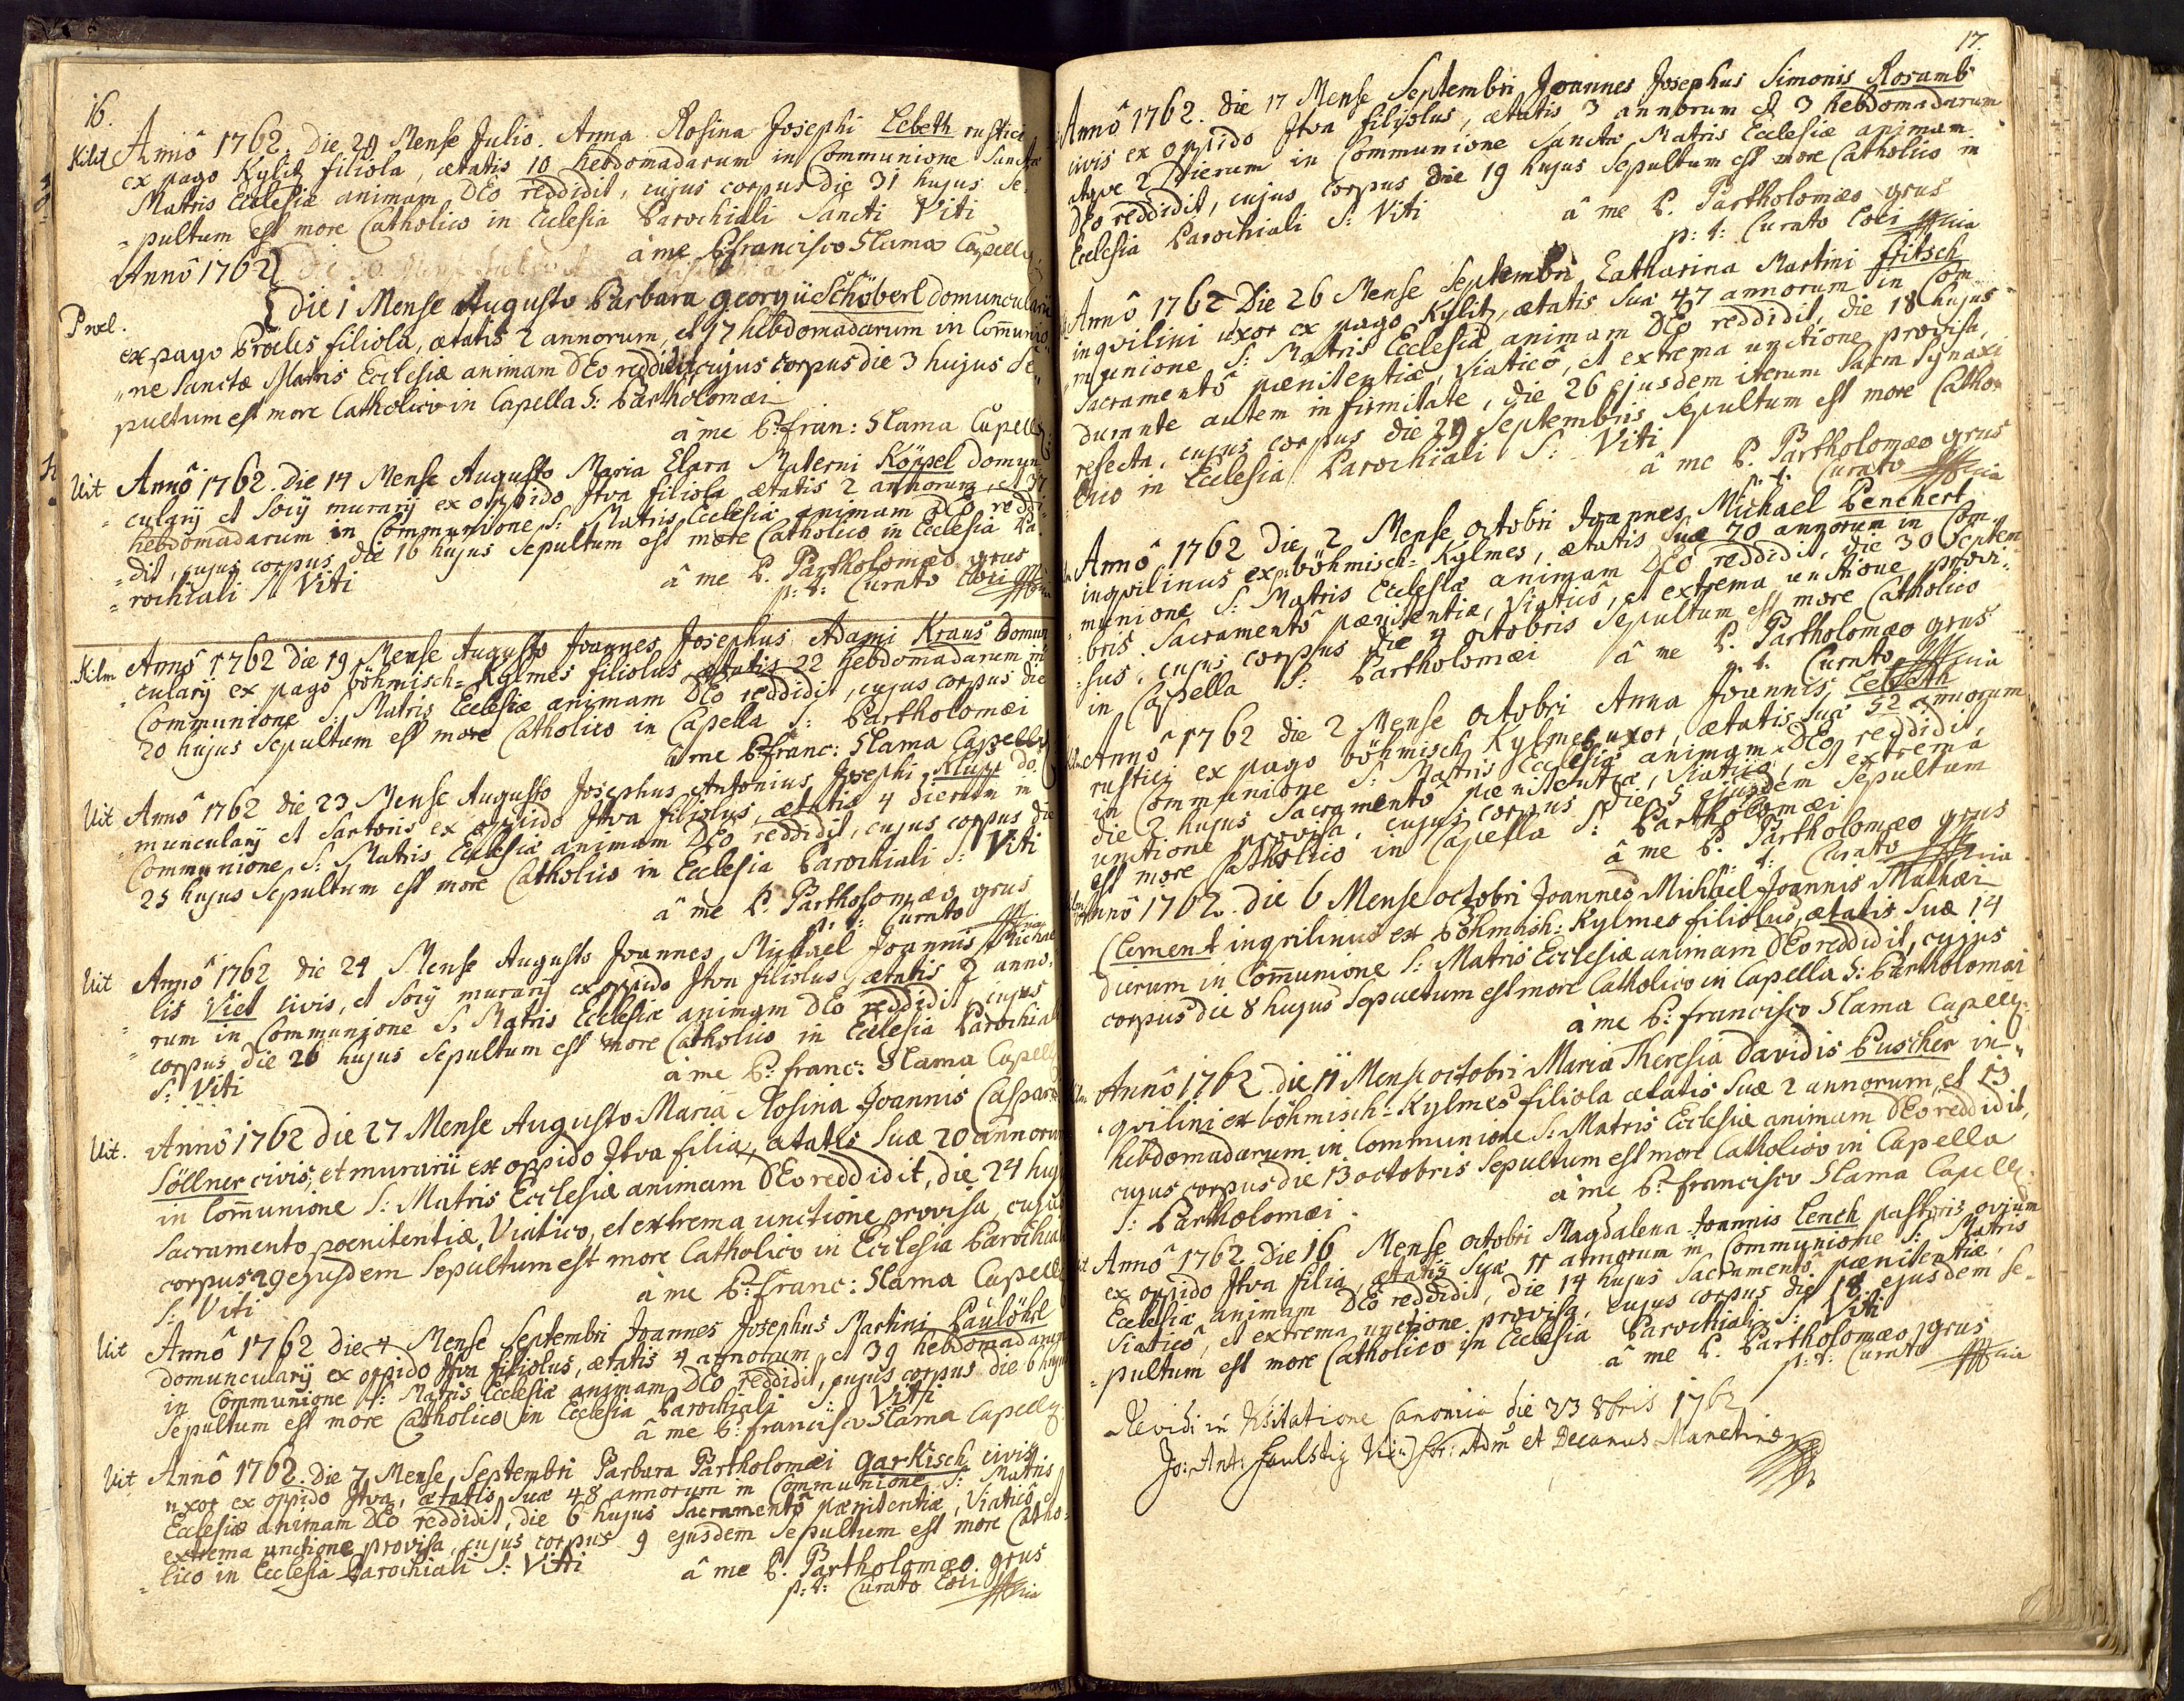 16.
Kilit Anno 1762. Die 29 Mense Julio. Anna Rosina Josephi Lebeth rustici
ex pago Kylitz filiola, ætatis 10 hebdomadarum in Communione Sanctæ
Matris Ecclesiæ animam DEo reddidit, cujus corpus die 31 hujus Se-
=pultum est more Catholico in Ecclesia Parochiali Sancti Viti
â me P. Francisco Slama Capell:
Annô 1762
Proel. Die 1 Mense Augusto Barbara Georgii Schöberl domuncularii
ex pago Proëles filiola, ætatis 2 annorum, et 97 hebdomadarum in Com̄unio„
„ne Sanctæ Matris Ecclesiæ animam DEo reddidit, cujus corpus die 3 hujus Se„
pultum est more Catholico in Capella S: Bartholomæi
a me P. Fran: Slama Capell:
Uit Annô 1762. Die 14 Mense Augusto Maria Clara Materni Köppel domun-
=culary et Socÿ murarÿ ex oppido Jtva filiola ætatis 2 annorum, et 37
hebdomadarum in Communione S: Matris Ecclesiæ animam DEo reddi-
=dit, cujus corpus die 16 hujus Sepultum est more Catholico in Ecclesia Pa-
=rochiali S. Viti
â me P. Bartholomæo grus
p: t: Curato Loci
Kilm Annô 1762 die 19 Mense Augusto Joannes Josephus Adami Kraus domun
=cularÿ ex pago böhmisch=Kylmes filiolus ætatis 22 hebdomadarum in
Communione S: Matris Ecclesiæ animam DEo reddidit, cujus corpus die
20 hujus Sepultum est more Catholico in Capella S: Bartholomæi
a me P. Franc: Slama Capell:
Uit Annô 1762 die 23 Mense Augusto Josephus Antonius Josephi Klupp do
=muncularÿ et Sartoris ex oppido Jtva filiolus, ætatis 4 dierum in
Communione S: Matris Ecclesiæ animam DEo reddidit, cujus corpus die
25 hujus Sepultum est more Catholico in Ecclesia Parochiali S: Viti
â me P. Bartholomæo grus
p: t: Curato
Uit Annô 1762 die 24 Mense Augusto Joannes Michael Joannis Michae
lis Viet civis, et Socÿ murarÿ ex oppido Jtva filiolus ætatis 2 anno-
=rum in Communione S. Matris Ecclesiæ animam DEo reddidit cujus
corpus die 26 hujus Sepultum est more Catholico in Ecclesia Parochiali
S: Viti
â me P. Franc: Slama Capell
Uit. Annô 1762 die 27 Mense Augusto Maria Rosina Joannis Caspari
Söllner civis, et murarii ex oppido Jtva filia, ætatis Suæ 20 annorum
in Com̄unione S: Matris Ecclesiæ animam DEo reddidit, die 24 huj
Sacramento poenitentiæ, Viatico, et extrema unctione provisa, cujus
corpus 29 ejusdem Sepultum est more Catholico in Ecclesia Parochiali
S: Viti
â me P. Franc: Slama Capell
Uit Annô 1762 die 4 Mense Septembri Joannes Josephus Martini Paulöhrl
domuncularÿ ex oppido Jtva filiolus, ætatis 4 annorum et 39 hebdomadarum
in Communione S: Matris Ecclesiæ animam DEo reddidit, cujus corpus die 6 hujus
Sepultum est more Catholico in Ecclesia Parochiali S: Viti
â me P. Francisco Slama Capell:
Uit Annô 1762. Die 7 Mense Septembri Barbara Bartholomæi Garkisch civis
uxor ex oppido Jtva, ætatis Suæ 48 annorum in Communione S: Matris
Ecclesiæ animam DEo reddidit, die 6 hujus Sacramentô pænitentiæ, Viaticô et
extrema unctione provisa, cujus corpus 9 ejusdem Sepultum est more Catho-
=lico in Ecclesia Parochiali S: Viti
â me P. Bartholomæo grus
p: t: Curato Loci
17.
Annô 1762. Die 17 Mense Septembri Joannes Josephus Simonis Rosamb
civis ex oppido Jtva filiolus, ætatis 3 annorum et 3 hebdomadarum
atqve 2 Dierum in Communione Sanctæ Matris Ecclesiæ animam
DEo reddidit, cujus corpus die 19 hujus Sepultum est more Catholico in
Ecclesia Parochiali S: Viti
â me P. Bartholomæo grus
p: t: Curato Loci
Annô 1762 Die 26 Mense Septembri Catharina Martini Fritsch
inqvilini uxor ex pago Kylitz, ætatis Suæ 47 annorum in Com
munione S: Matris Ecclesiæ animam DEo reddidit, die 18 hujus
Sacramentô pænitentiæ, Viaticô, et extrema unctione provisa,
durante autem infirmitate, die 26 ejusdem iterum Sacra Synaxi
refecta, cujus corpus die 29 Septembris Sepultum est more Catho
lico in Ecclesia Parochiali S: Viti
â me P. Bartholomæo grus
p. t. Curato
Annô 1762 Die 2 Mense octobri Joannes Michael Penchert
inqvilinus ex p. böhmisch=Kylmes, ætatis Suæ 70 annorum in Com
munione S: Matris Ecclesiæ animam DEo reddidit, die 30 Septem
bris Sacramentô pænitentiæ, Viaticô, et extrema unctione provi-
=sus, cujus corpus die 4 octobris Sepultum est more Catholico
in Capella S: Bartholomæi
â me P. Bartholomæo grus
p. t. Curato
Annô 1762 die 2 Mense octobri Anna Joannis Lebeth
rustici ex pago böhmisch Kylmes uxor, ætatis Suæ 52 annorum
in Communione S: Matris Ecclesiæ animam DEo reddidit,
die 2 hujus Sacramentô pænitentiæ, Viaticô, et extrema
unctione provisa, cujus corpus die 5 ejusdem Sepultum
est more Catholico in Capella S: Bartholomæi
â me P. Bartholomæo grus
p: t: Curato
Annô 1762. die 6 Mense octobri Joannes Michael Joannis Mathæi
Clement inqvilinus ex Böhmisch: Kylmes filiolus, ætatis Suæ 14
dierum in Com̄unione S: Matris Ecclesiæ animam DEo reddidit, cujus
corpus die 8 hujus Sepultum est more Catholico in Capella S: Bartholomæi
â me P. Francisco Slama Capell:
Annô 1762 die 11 Mense octobri Maria Theresia Davidis Puscher in„
„qvilini ex böhmisch=Kylmes filiola ætatis Suæ 2 annorum, et 13
hebdomadarum in Communione S: Matris Ecclesiæ animam DEo reddidit,
cujus corpus die 13 octobris Sepultum est more Catholico in Capella
S: Bartholomæi.
â me P. Francisco Slama Capell:
Annô 1762 Die 16 Mense octobri Magdalena Joannis Lench pastoris ovium
ex oppido Jtva filia, ætatis Suæ 11 annorum in Communione S: Matris
Ecclesiæ animam DEo reddidit, die 14 hujus Sacramentô pænitentiæ,
Viaticô, et extrema unctione provisa, cujus corpus die 18 ejusdem Se-
=pultum est more Catholico in Ecclesia Parochiali S: Viti
â me P. Bartholomæo grus
p: t: Curato
Revidi in Visitatione Canonica die 23 8bris 1762
Jo: Ant: Faulstig Adm et Decanus Manetinæ